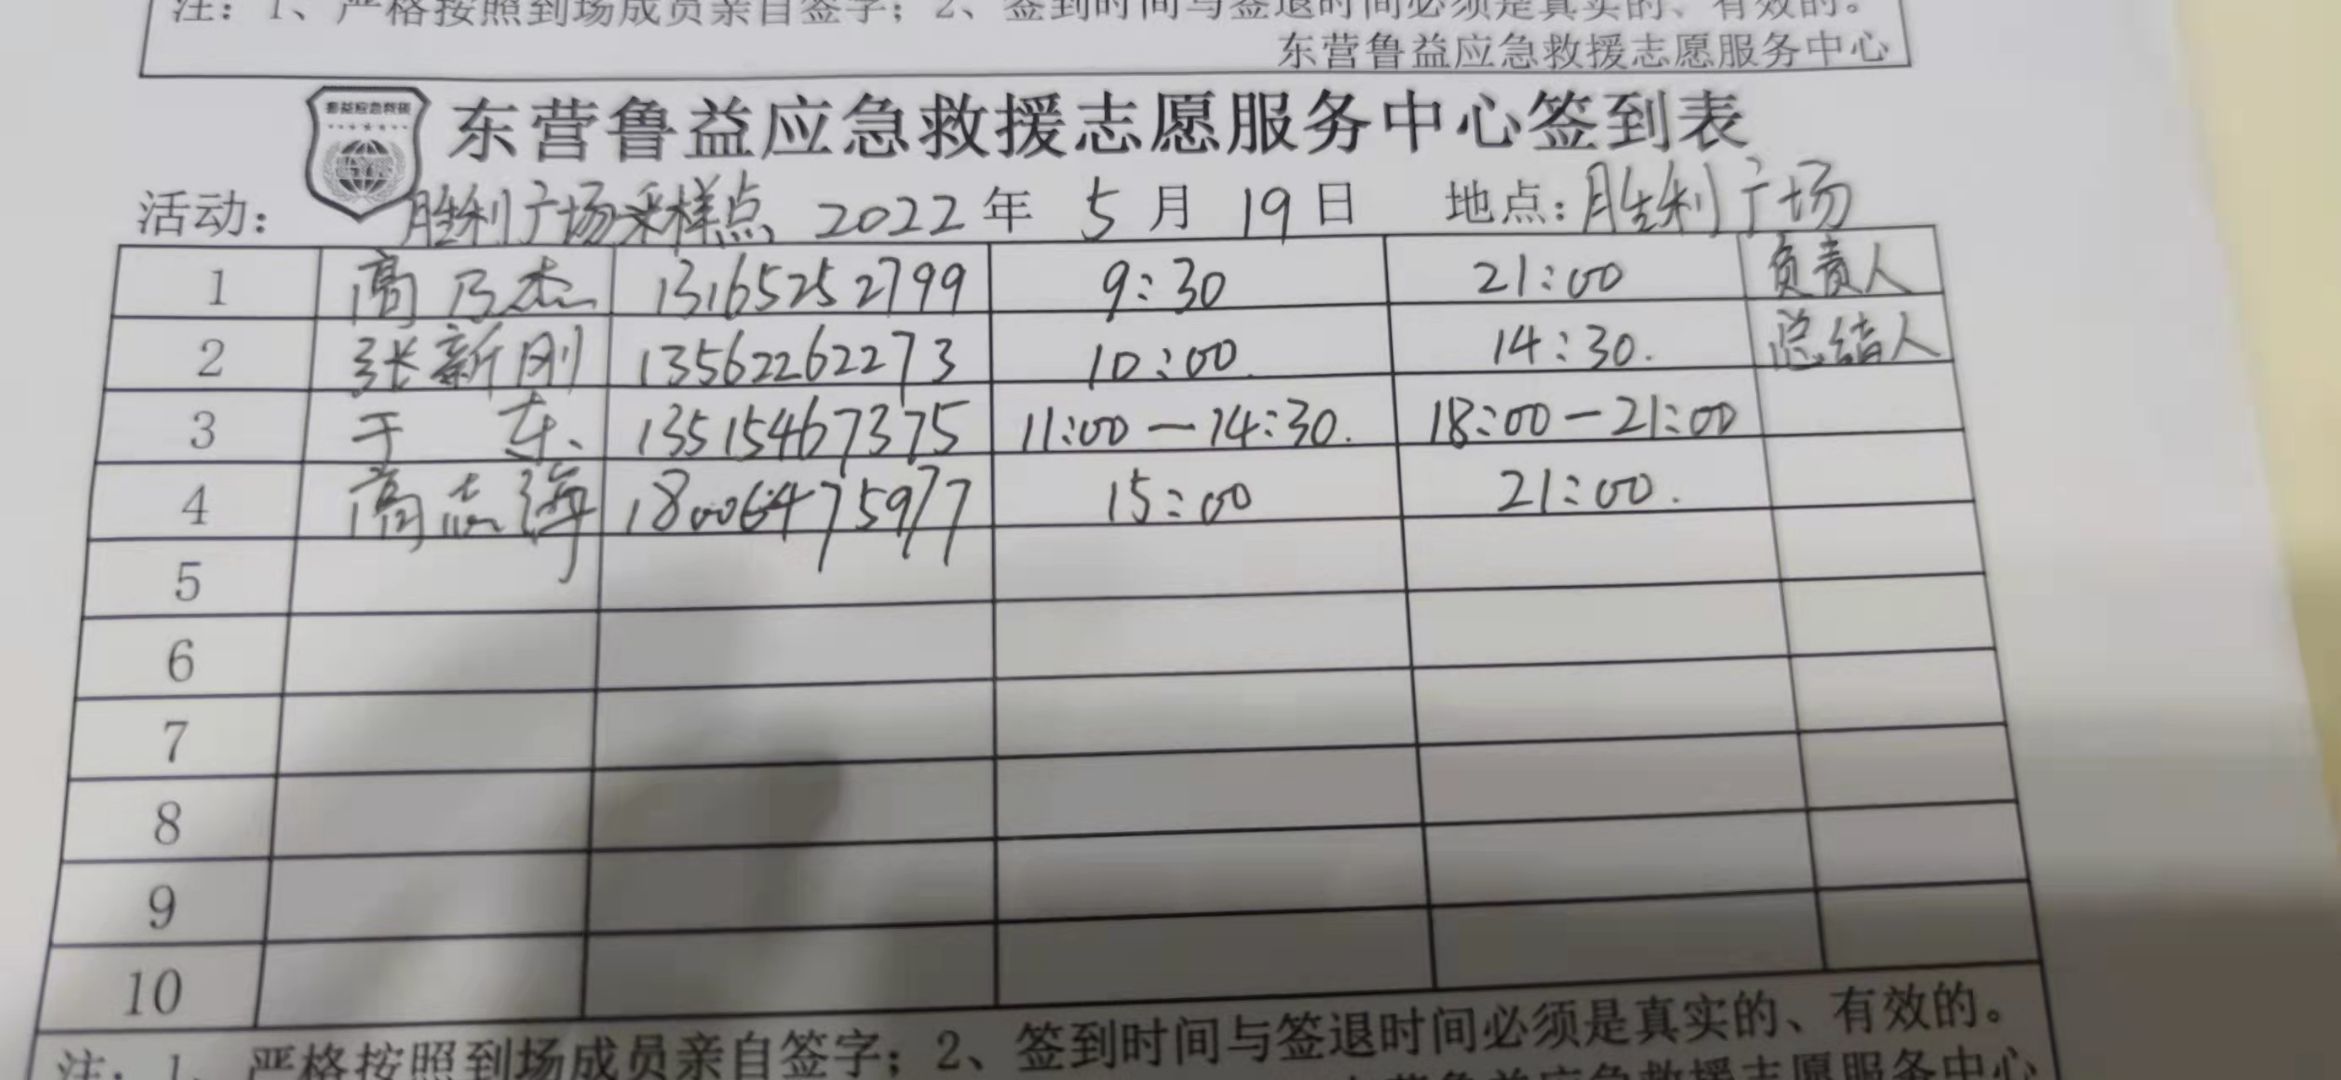 注：1、严格按照到场成员亲自签字；2、签到时间与签退时间必须是真实的、有效的。
东营鲁益应急救援志愿服务中心
鲁益应急救援
东营鲁益应急救援志愿服务中心签到表
活动：胜利广场采样点 2022年 5月 19日 地点：胜利广场
1 高乃杰 13165252799 9:30 21:00 负责人
2 张新刚 13562262273 10:00 14:30. 总结人
3 于东 13515467375 11:00－14:30. 18:00－21:00
4 高志海 18006475977 15:00 21:00.
5
6
7
8
9
10
注：1、严格按照到场成员亲自签字；2、签到时间与签退时间必须是真实的、有效的。
东营鲁益应急救援志愿服务中心